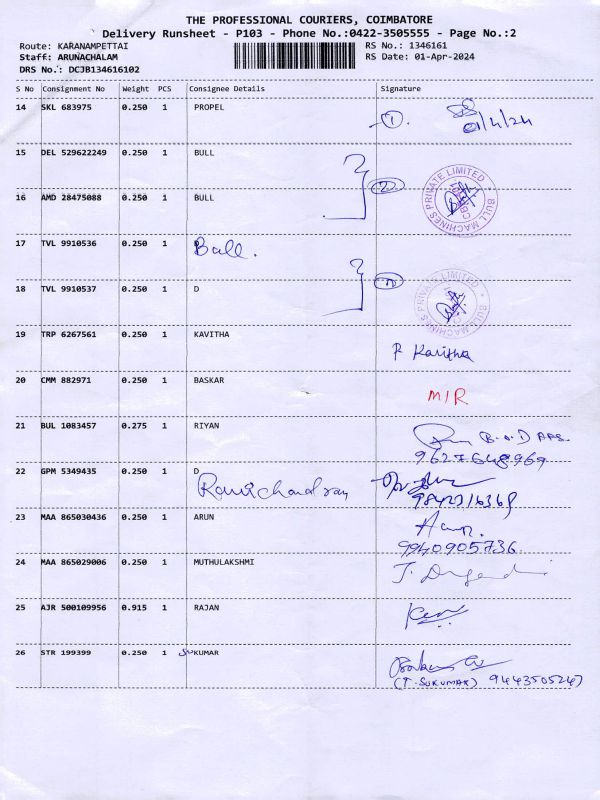 THE PROFESSIONAL COURIERS, COIMBATORE
Delivery Runsheet - P103 - Phone No.:0422-3505555 - Page No.:2
Route: KARANAMPETTAI RS No.: 1346161
Staff: ARUNACHALAM RS Date: 01-Apr-2024
DRS No.: DCJB134616102
S No Consignment No Weight PCS Consignee Details Signature
14 SKL 683975 0.250 1 PROPEL 1. 01/4/24
15 DEL 529622249 0.250 1 BULL
2
16 AMD 28475088 0.250 1 BULL BULL MACHINES PRIVATE LIMITED
17 TVL 9910536 0.250 1 Bull.
18 TVL 9910537 0.250 1 D BULL MACHINES PRIVATE LIMITED
19 TRP 6267561 0.250 1 KAVITHA P Kavitha
20 CMM 882971 0.250 1 BASKAR M/R
21 BUL 1083457 0.275 1 RIYAN
9627648969
22 GPM 5349435 0.250 1 D
Ravichandran
23 MAA 865030436 0.250 1 ARUN Arun.
9940905736
24 MAA 865029006 0.250 1 MUTHULAKSHMI
25 AJR 500109956 0.915 1 RAJAN
26 STR 199399 0.250 1 SUKUMAR
(T. SUKUMAR) 9443505247